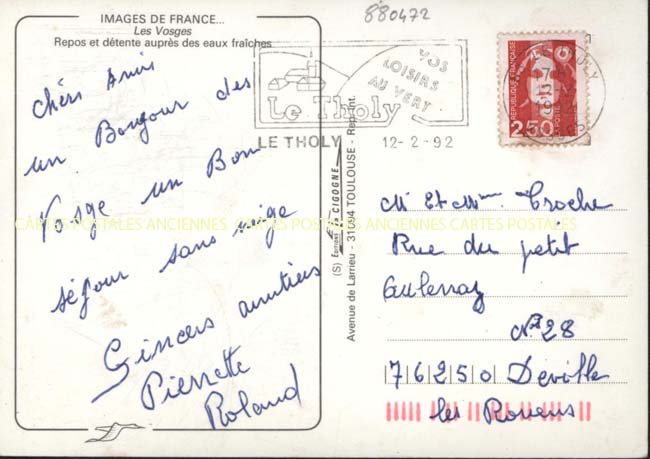 880472
IMAGES DE FRANCE...
Les Vosges
Repos et détente auprès des eaux fraîches
chers Amis
un Bonjour des
Vosge un Bon
séjour sans neige
Sincers amitiers
Pierrette
Roland
VOS
LOISIRS
AU VERT
Le Tholy
LE THOLY 12-2-92
REPUBLIQUE FRANÇAISE
2,50
LA POSTE
(S) Editions la CIGOGNE
Avenue de Larrieu - 31094 TOULOUSE - Reprint.
CARTES POSTALES ANCIENNES CARTES POSTALES ANCIENNES CARTES POSTALES
Mr Et Mme Croche
Rue du petit
Aulenay
N° 28
76250 Déville
les Rouens